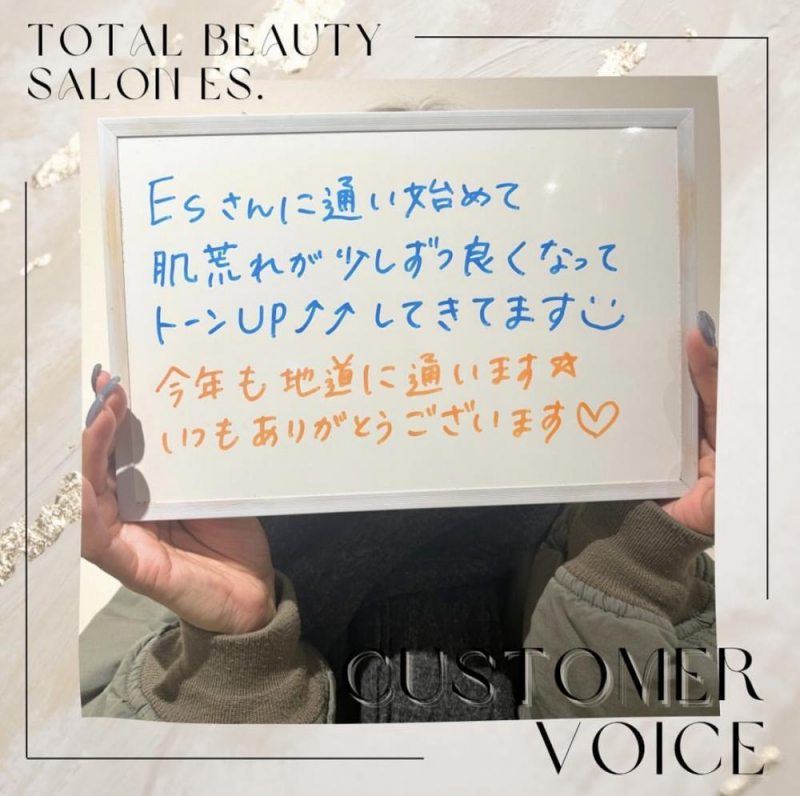 TOTAL BEAUTY
SALON ES.
Esさんに通い始めて
肌荒れが少しずつ良くなって
トーンUP↗↗してきてます☺
今年も地道に通います☆
いつもありがとうございます♡
CUSTOMER
VOICE